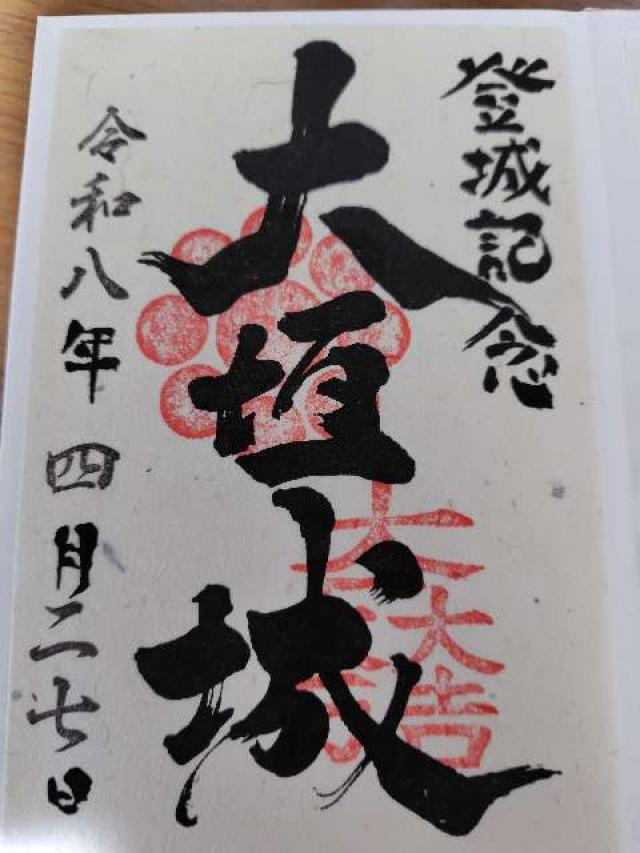 登城記念
大垣城
大一大万大吉
令和八年四月二七日